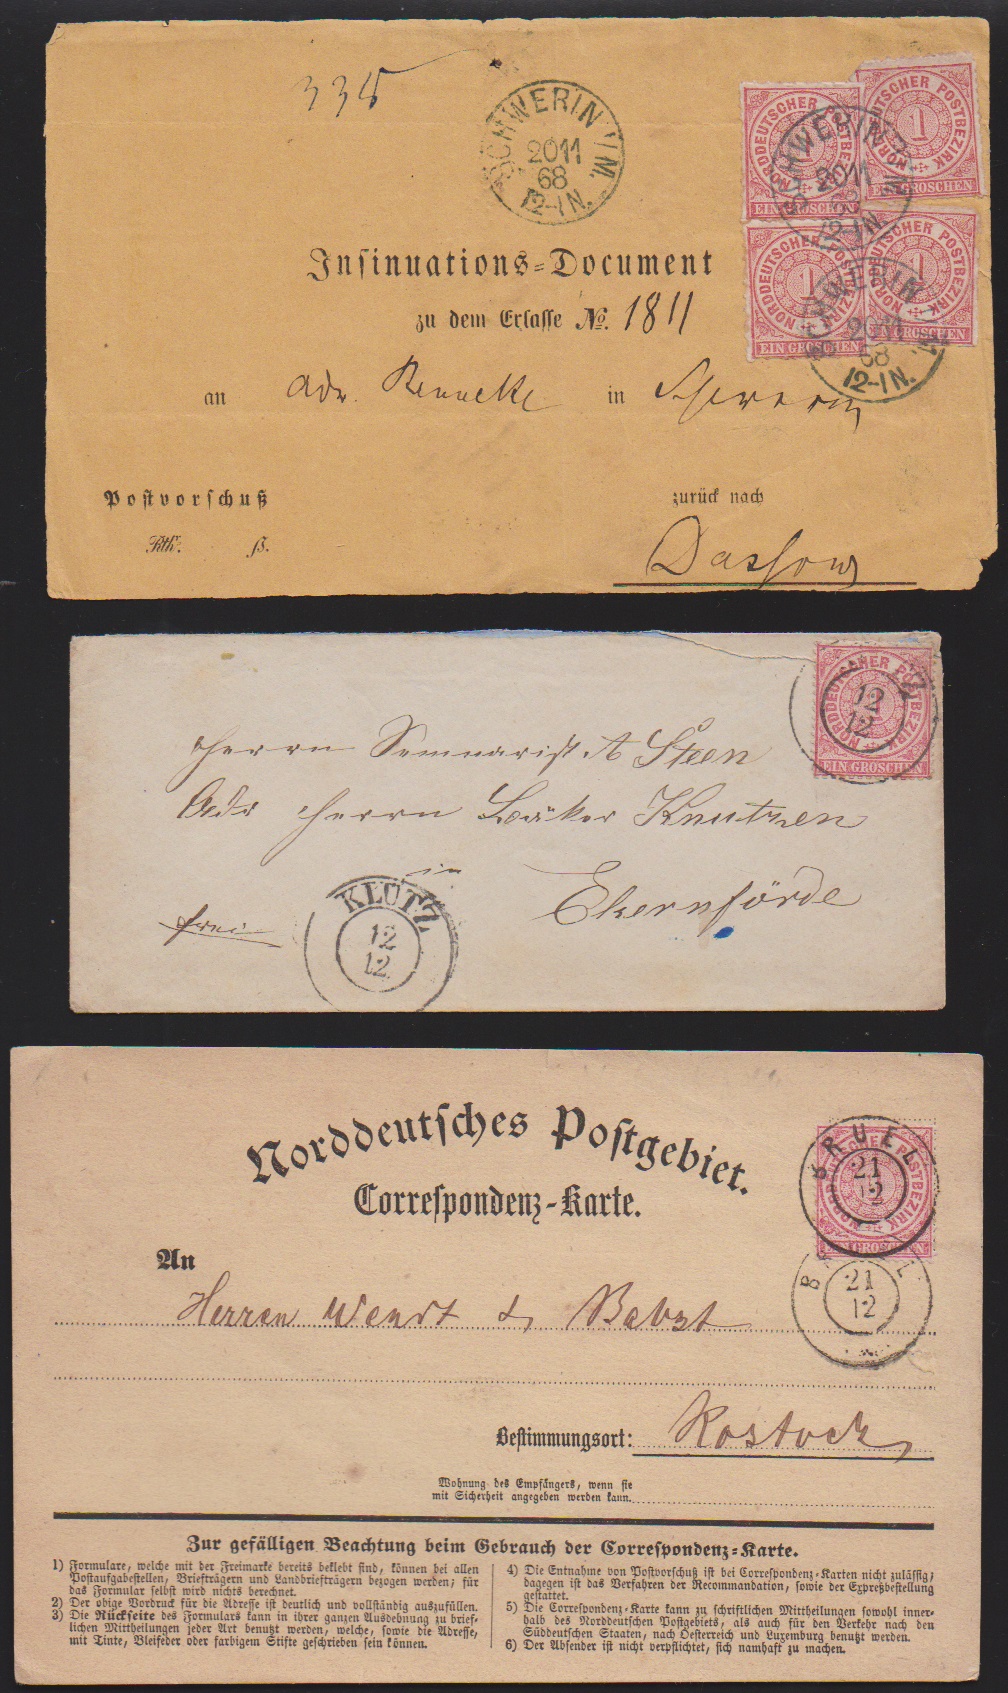 335
SCHWERIN I/M.
2011
68
12-1N.
NORDDEUTSCHER POSTBEZIRK
1
EIN GROSCHEN
NORDDEUTSCHER POSTBEZIRK
1
EIN GROSCHEN
NORDDEUTSCHER POSTBEZIRK
1
EIN GROSCHEN
NORDDEUTSCHER POSTBEZIRK
1
EIN GROSCHEN
SCHWERIN I/M.
2011
68
12-1N.
SCHWERIN I/M.
2011
68
12-1N.
Insinuations-Document
zu dem Erlasse No. 1811
an Adv. in Schwerin
Postvorschuß zurück nach
Rthr. ß.
Dassow
NORDDEUTSCHER POSTBEZIRK
EIN GROSCHEN
12
12
Herrn Seminarist A Steen
Adr Herrn Bäker Knutzen
in
Ekernförde
frei
KLÜTZ
12
12
Norddeutsches Postgebiet.
Correspondenz-Karte.
NORDDEUTSCHER POSTBEZIRK
EIN GROSCHEN
BRUEL
21
12
BRUEL
21
12
An
Herren Wendt & Babzt
Bestimmungsort: Rostock
Wohnung des Empfängers, wenn sie
mit Sicherheit angegeben werden kann.
Zur gefälligen Beachtung beim Gebrauch der Correspondenz-Karte.
1) Formulare, welche mit der Freimarke bereits beklebt sind, können bei allen
Postaufgabestellen, Briefträgern und Landbriefträgern bezogen werden; für
das Formular selbst wird nichts berechnet.
2) Der obige Vordruck für die Adresse ist deutlich und vollständig auszufüllen.
3) Die Rückseite des Formulars kann in ihrer ganzen Ausdehnung zu brief-
lichen Mittheilungen jeder Art benutzt werden, welche, sowie die Adresse,
mit Tinte, Bleifeder oder farbigem Stifte geschrieben sein können.
4) Die Entnahme von Postvorschuß ist bei Correspondenz-Karten nicht zulässig,
dagegen ist das Verfahren der Recommandation, sowie der Expreßbestellung
gestattet.
5) Die Correspondenz-Karte kann zu schriftlichen Mittheilungen sowohl inner-
halb des Norddeutschen Postgebiets, als auch für den Verkehr nach den
Süddeutschen Staaten, nach Oesterreich und Luxemburg benutzt werden.
6) Der Absender ist nicht verpflichtet, sich namhaft zu machen.